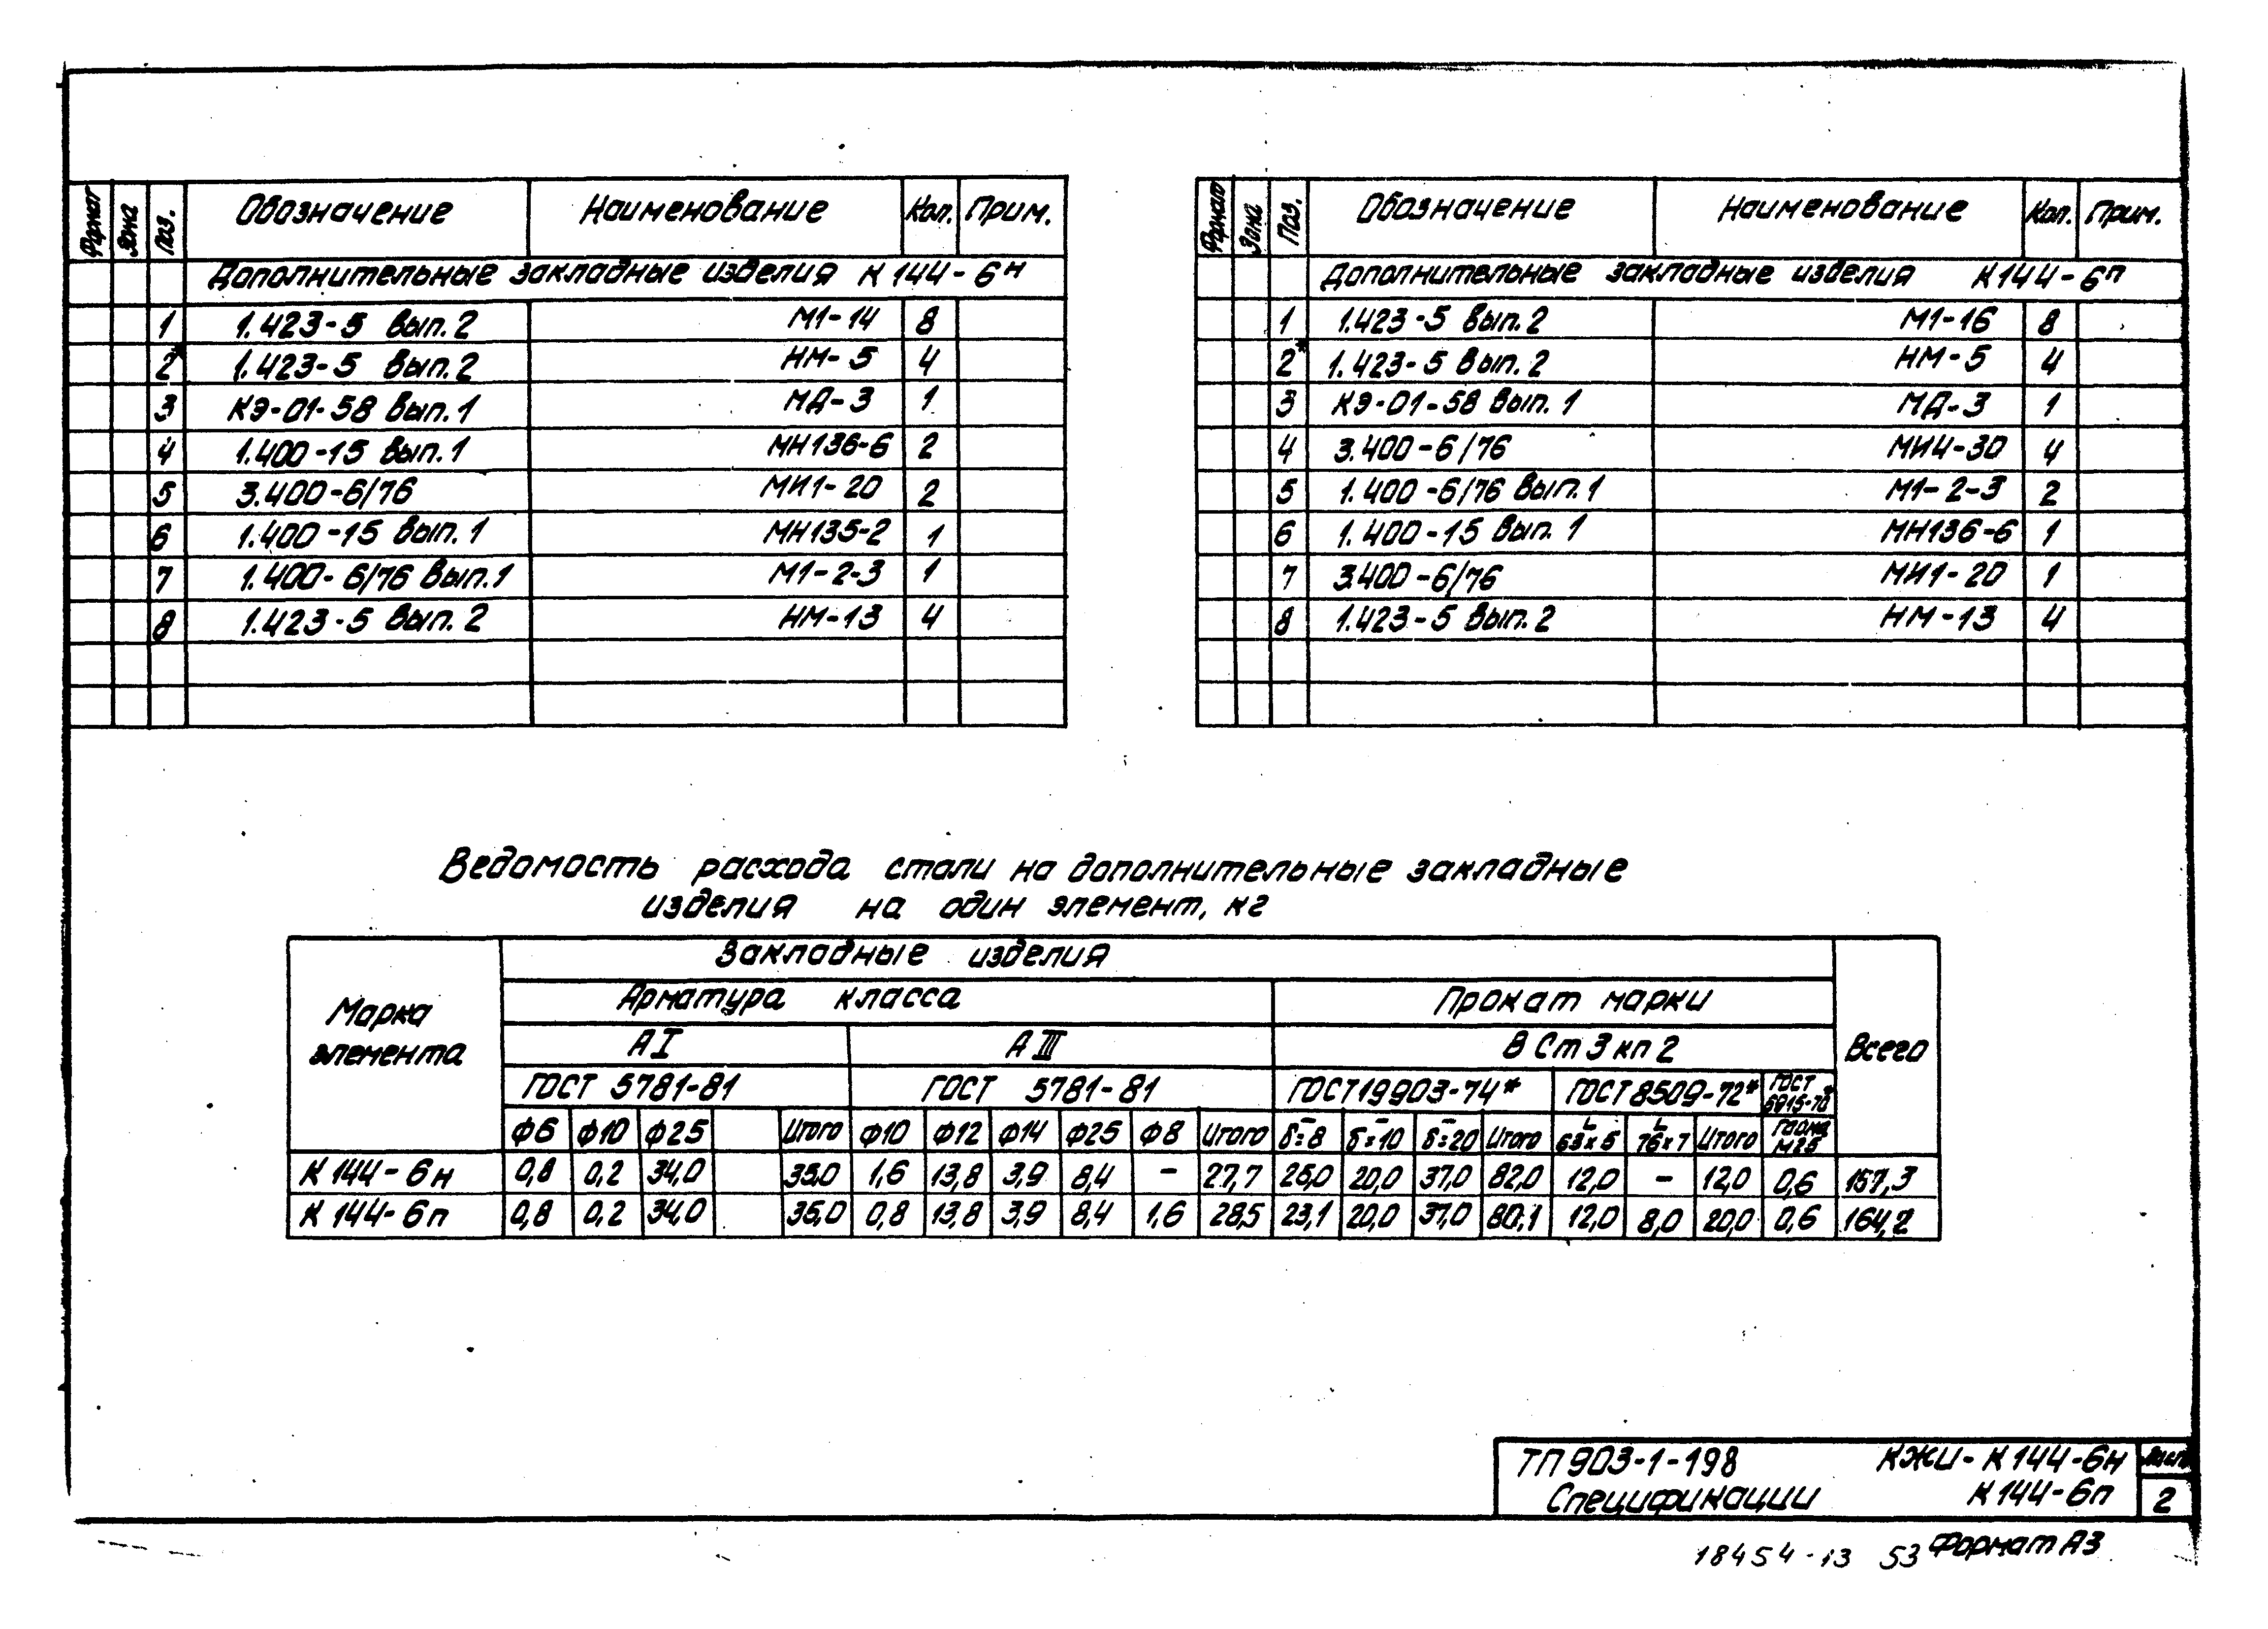 Формат Зона Поз. Обозначение Наименование Кол. Прим.
Дополнительные закладные изделия К 144-6н
1 1.423-5 вып.2 М1-14 8
2* 1.423-5 вып.2 НМ-5 4
3 КЭ-01-58 вып.1 МД-3 1
4 1.400-15 вып.1 МН136-6 2
5 3.400-6/76 МИ1-20 2
6 1.400-15 вып.1 МН135-2 1
7 1.400-6/76 вып.1 М1-2-3 1
8 1.423-5 вып.2 НМ-13 4
Формат Зона Поз. Обозначение Наименование Кол. Прим.
Дополнительные закладные изделия К144-6п
1 1.423-5 вып.2 М1-16 8
2* 1.423-5 вып.2 НМ-5 4
3 КЭ-01-58 вып.1 МД-3 1
4 3.400-6/76 МИ4-30 4
5 1.400-6/76 вып.1 М1-2-3 2
6 1.400-15 вып.1 МН136-6 1
7 3.400-6/76 МИ1-20 1
8 1.423-5 вып.2 НМ-13 4
Ведомость расхода стали на дополнительные закладные
изделия на один элемент, кг
Марка элемента Закладные изделия Всего
Арматура класса Прокат марки
АI АIII ВСт3кп2
ГОСТ 5781-81 ГОСТ 5781-81 ГОСТ19903-74* ГОСТ8509-72* ГОСТ 5915-70*
Ф6 Ф10 Ф25 Итого Ф10 Ф12 Ф14 Ф25 Ф8 Итого δ=8 δ=10 δ=20 Итого 63х5 76х7 Итого Гайка М25
К 144-6н 0,8 0,2 34,0 35,0 1,6 13,8 3,9 8,4 – 27,7 25,0 20,0 37,0 82,0 12,0 – 12,0 0,6 157,3
К 144-6п 0,8 0,2 34,0 35,0 0,8 13,8 3,9 8,4 1,6 28,5 23,1 20,0 37,0 80,1 12,0 8,0 20,0 0,6 164,2
ТП 903-1-198 КЖИ-К144-6н Лист
Спецификации К144-6п 2
18454-13 53 Формат А3